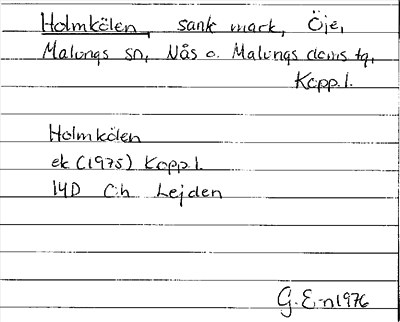 Holmkölen, sank mark, Öje,
Malungs sn, Nås o. Malungs doms tg,
Kopp.l.
Holmkölen
ek (1975) Kopp.l.
14D Ch Lejden
G. E-n 1976